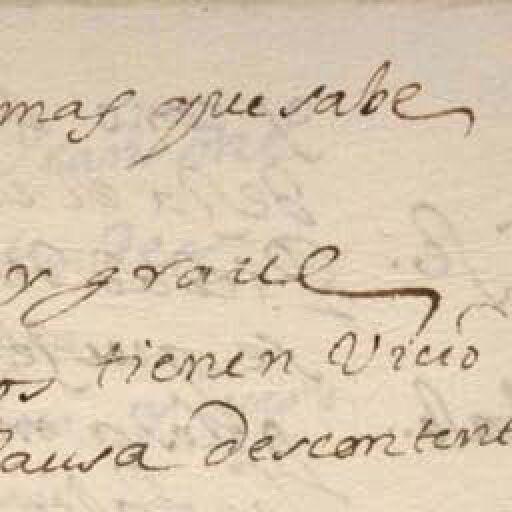 mas que sabe
y graue
os tienen Vicio
causa descontent